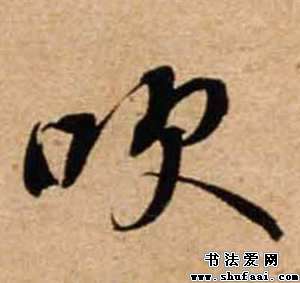 吹
书法爱网
www.shufaai.com